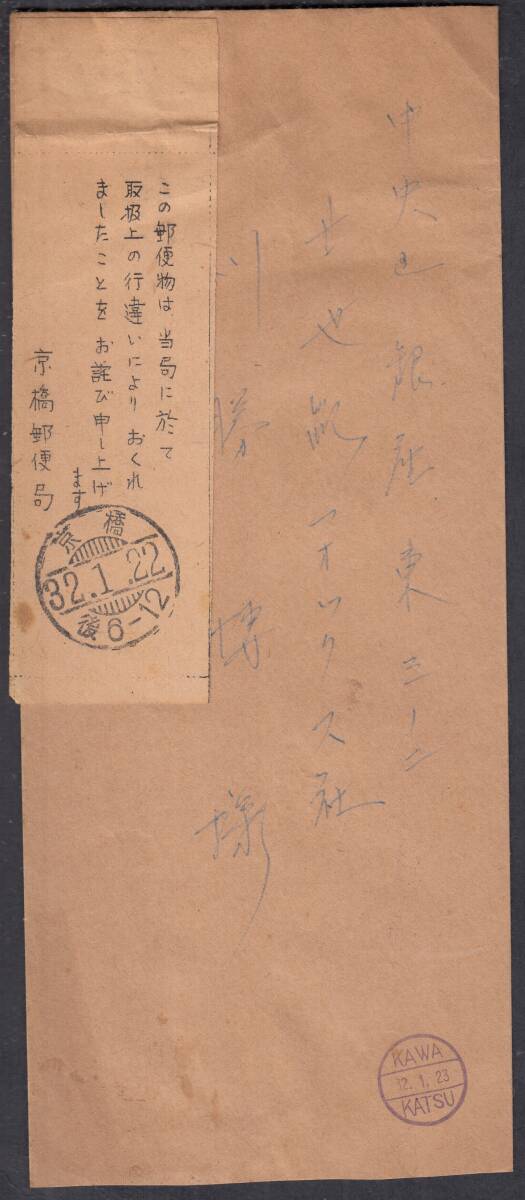 中央区銀座東三ノ二
廿世紀フオツクス社
川勝博様
この郵便物は、当局に於て
取扱上の行違いにより おくれ
ましたことを お詫び申し上げ
ます
京橋郵便局
京橋
32.1.22
後6-12
KAWA
32.1.23
KATSU